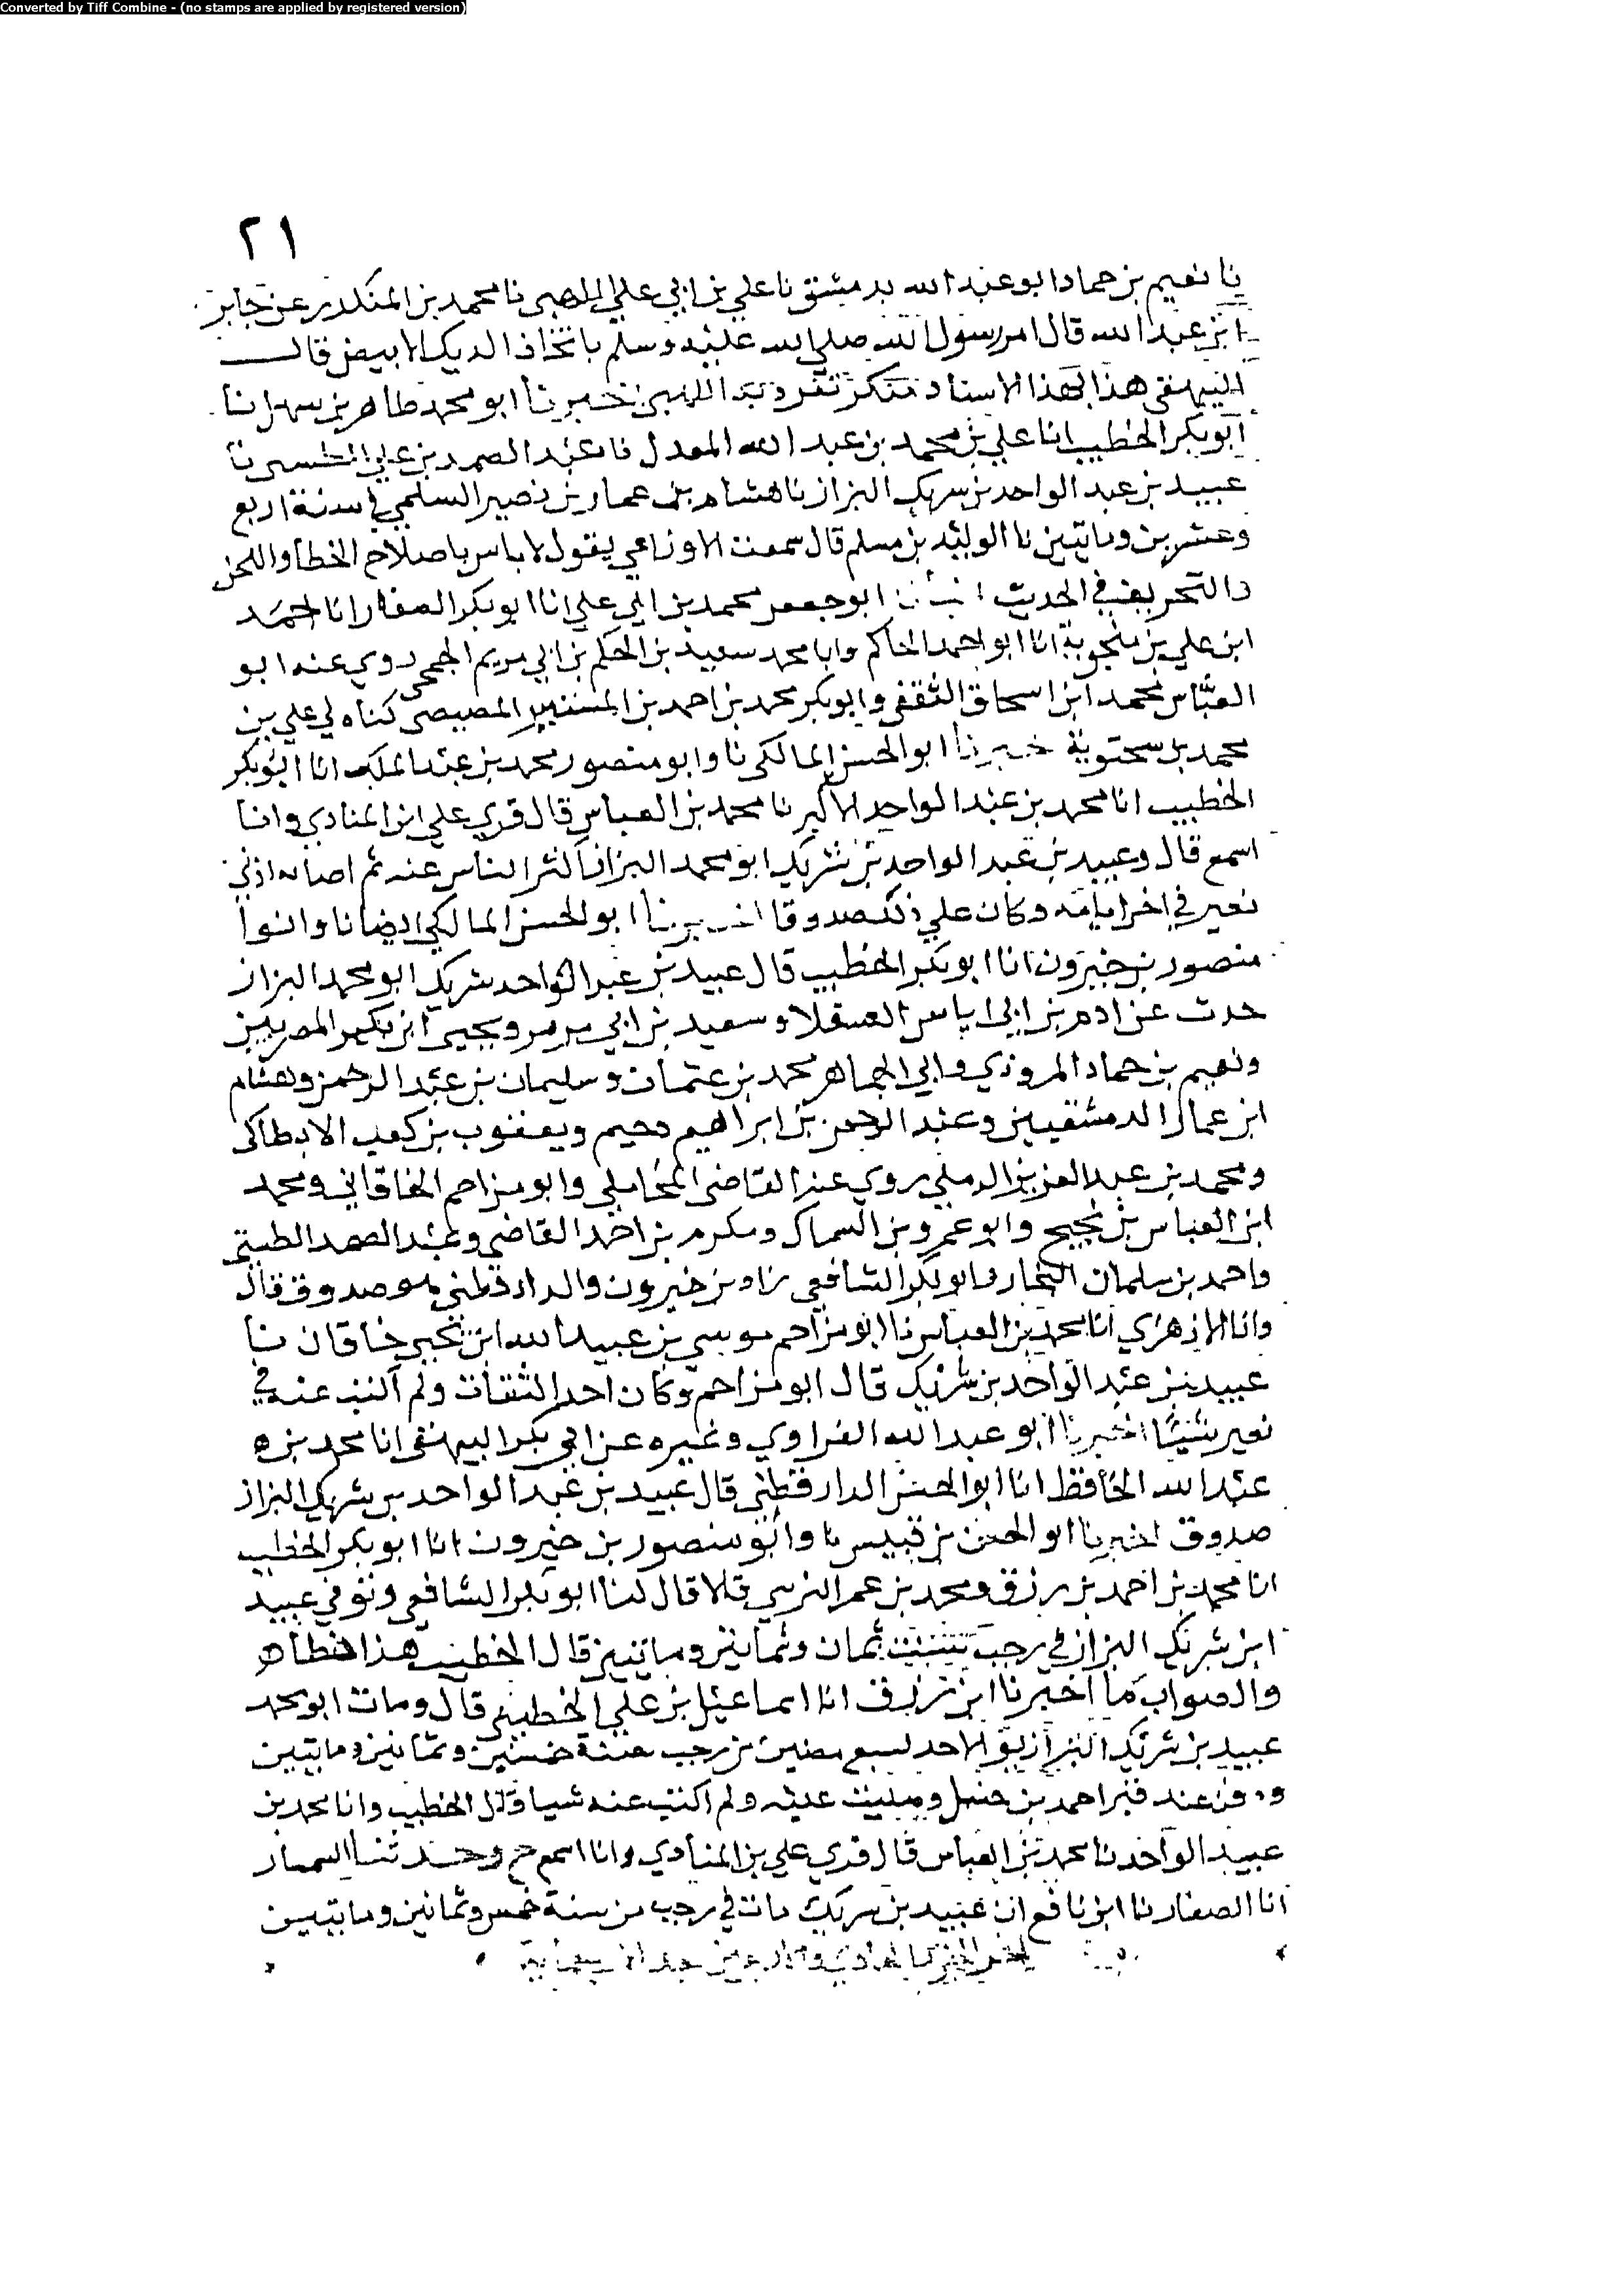 Converted by Tiff Combine - (no stamps are applied by registered version)
٢١
نا نعيم بن حماد ابو عبد الله بدمشق نا علي بن ابي علي اللهبي نا محمد بن المنكدر عن جابر
ابن عبد الله قال امر رسول الله صلى الله عليه وسلم باتخاذ الديك الابيض قال
البيهقي هذا بهذا الاسناد منكر تفرد به اللهبي اخبرنا ابو محمد طاهر بن سهل انا
ابو بكر الخطيب انا علي بن محمد بن عبد الله المعدل نا عبد الصمد بن علي نا
عبيد بن عبد الواحد بن شريك البزاز نا هشام بن عمار بن نصير السلمي في سنة اربع
وعشرين وماتين نا الوليد بن مسلم قال سمعت الاوزاعي يقول لا باس باصلاح الخطا واللحن
والتحريف في الحديث انبأنا ابو جعفر محمد بن ابي علي انا ابو بكر الصفار انا احمد
ابن علي بن منجوية انا ابو احمد الحاكم وابا محمد سعيد بن الحكم بن ابي مريم الجمحي روي عنه ابو
العباس محمد ابن اسحاق الثقفي وابو بكر محمد بن احمد بن المستنير المصيصي كناه لي علي بن
محمد بن سختوية اخبرنا ابو الحسن المالكي نا وابو منصور محمد بن عبد الملك انا ابو بكر
الخطيب انا محمد بن عبد الواحد الاكبر نا محمد بن العباس قال قري علي ابن المنادي وانا
اسمع قال وعبيد بن عبد الواحد بن شريك ابو محمد البزاز اكثر الناس عنه ثم اصابه اذني
تغير في اخر ايامه وكان علي ذلك صدوقا اخبرنا ابو الحسن المالكي ايضا نا وابوا
منصور بن خيرون انا ابو بكر الخطيب قال عبيد بن عبد الواحد شريك ابو محمد البزاز
حدث عن ادم بن ابي اياس العسقلا وسعيد بن ابي مريم ويحيى ابن بكير المصريين
ونعيم بن حماد المروزي وابي الجماهر محمد بن عثمان وسليمان بن عبد الرحمن وهشام
ابن عمار الدمشقيين وعبد الرحمن بن ابراهيم دحيم ويعقوب بن كعب الانطاكي
ومحمد بن عبد العزيز الرملي روي عنه القاضي المحاملي وابو مزاحم الخاقاني ومحمد
ابن العباس بن نجيح وابو عمرو بن السماك ومكرم بن احمد القاضي وعبد الصمد الطستي
واحمد بن سلمان النجاد وابو بكر الشافعي زاد بن خيرون والدارقطني هو صدوق قال
وانا الازهري انا محمد بن العباس نا ابو مزاحم موسي بن عبيد الله ابن يحيى خاقان نا
عبيد بن عبد الواحد بن شريك قال ابو مزاحم وكان احد الثقات ولم اكتب عنه في
تغير شيئا اخبرنا ابو عبد الله الفراوي وغيره عن ابي بكر البيهقي انا محمد بن ه
عبد الله الحافظ انا ابو الحسن الدارقطني قال عبيد بن عبد الواحد بن شريك البزاز
صدوق اخبرنا ابو الحسن بن قبيس نا وابو منصور بن خيرون انا ابو بكر الخطيب
انا محمد بن احمد بن رزق ومحمد بن عمر النرسي قالا قال لنا ابو بكر الشافعي وتوفي عبيد
ابن شريك البزاز في رجب ثمان وثمانين وماتين قال الخطيب هذا خطا ه
والصواب ما اخبرنا ابن رزق انا اسماعيل بن علي الخطبي قال ومات ابو محمد
عبيد بن شريك البزاز يوم الاحد لسبع مضين من رجب سنة خمس وثمانين ومايتين
ودفن عند قبر احمد بن حنبل وصليت عليه ولم اكتب عنه شيا قال الخطيب وانا محمد بن
عبيد الواحد نا محمد بن العباس قال قري علي بن المنادي وانا اسمع ح وحدثنا السمسار
انا الصفار نا ابن نافع ان عبيد بن شريك مات في رجب من سنة خمس وثمانين ومايتين